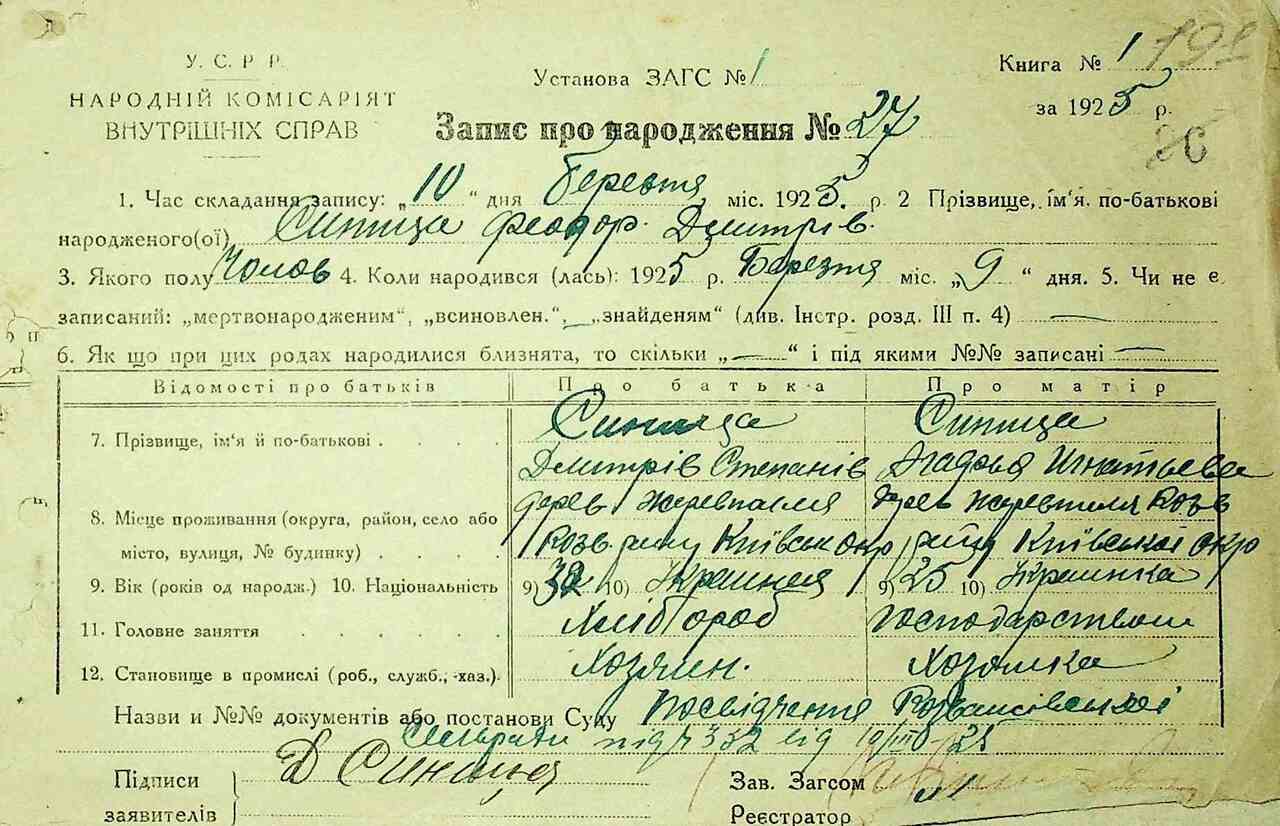 У. С. Р. Р.
НАРОДНІЙ КОМІСАРІЯТ
ВНУТРІШНІХ СПРАВ
Установа ЗАГС № 1
Книга № 1
198
за 1925 р.
26
Запис про народження № 27
1. Час складання запису: „10“ дня Березтя міс. 1925. р. 2 Прізвище, ім'я. по-батькові
народженого(ої) Синица Феодор. Дмитрів.
3. Якого полу Чолов 4. Коли народився (лась): 1925 р. Березтя міс. „9“ дня. 5. Чи не є
записаний: „мертвонародженим“, „всиновлен.“, „знайденям“ (див. Інстр. розд. III п. 4) —
6. Як що при цих родах народилися близнята, то скільки „—“ і під якими №№ записані —
Відомості про батьків Про батька Про матір
7. Прізвище, ім'я й по-батькові . . . . Синица Синица
Дмитрів Степанів Агафья Игнатьева
8. Місце проживання (округа, район, село або дерев Жеревпилля дерев Розв
місто, вулиця, № будинку) . . . . Розв. рину Київськ окр рину Київської окр
9. Вік (років од народж.) 10. Національність 9) 32 10) Украинец 9) 25 10) Украинка
11. Головне заняття . . . . . . Хлібороб Господарством
12. Становище в промислі (роб., служб., -хаз.). Хозяин. Хозяйка
Назви и №№ документів або постанови Суду Посвідчення Розважівської
Сельради під ч 332 від 10/III-25
Підписи Д Синиця Зав. Загсом
заявителів Реєстратор